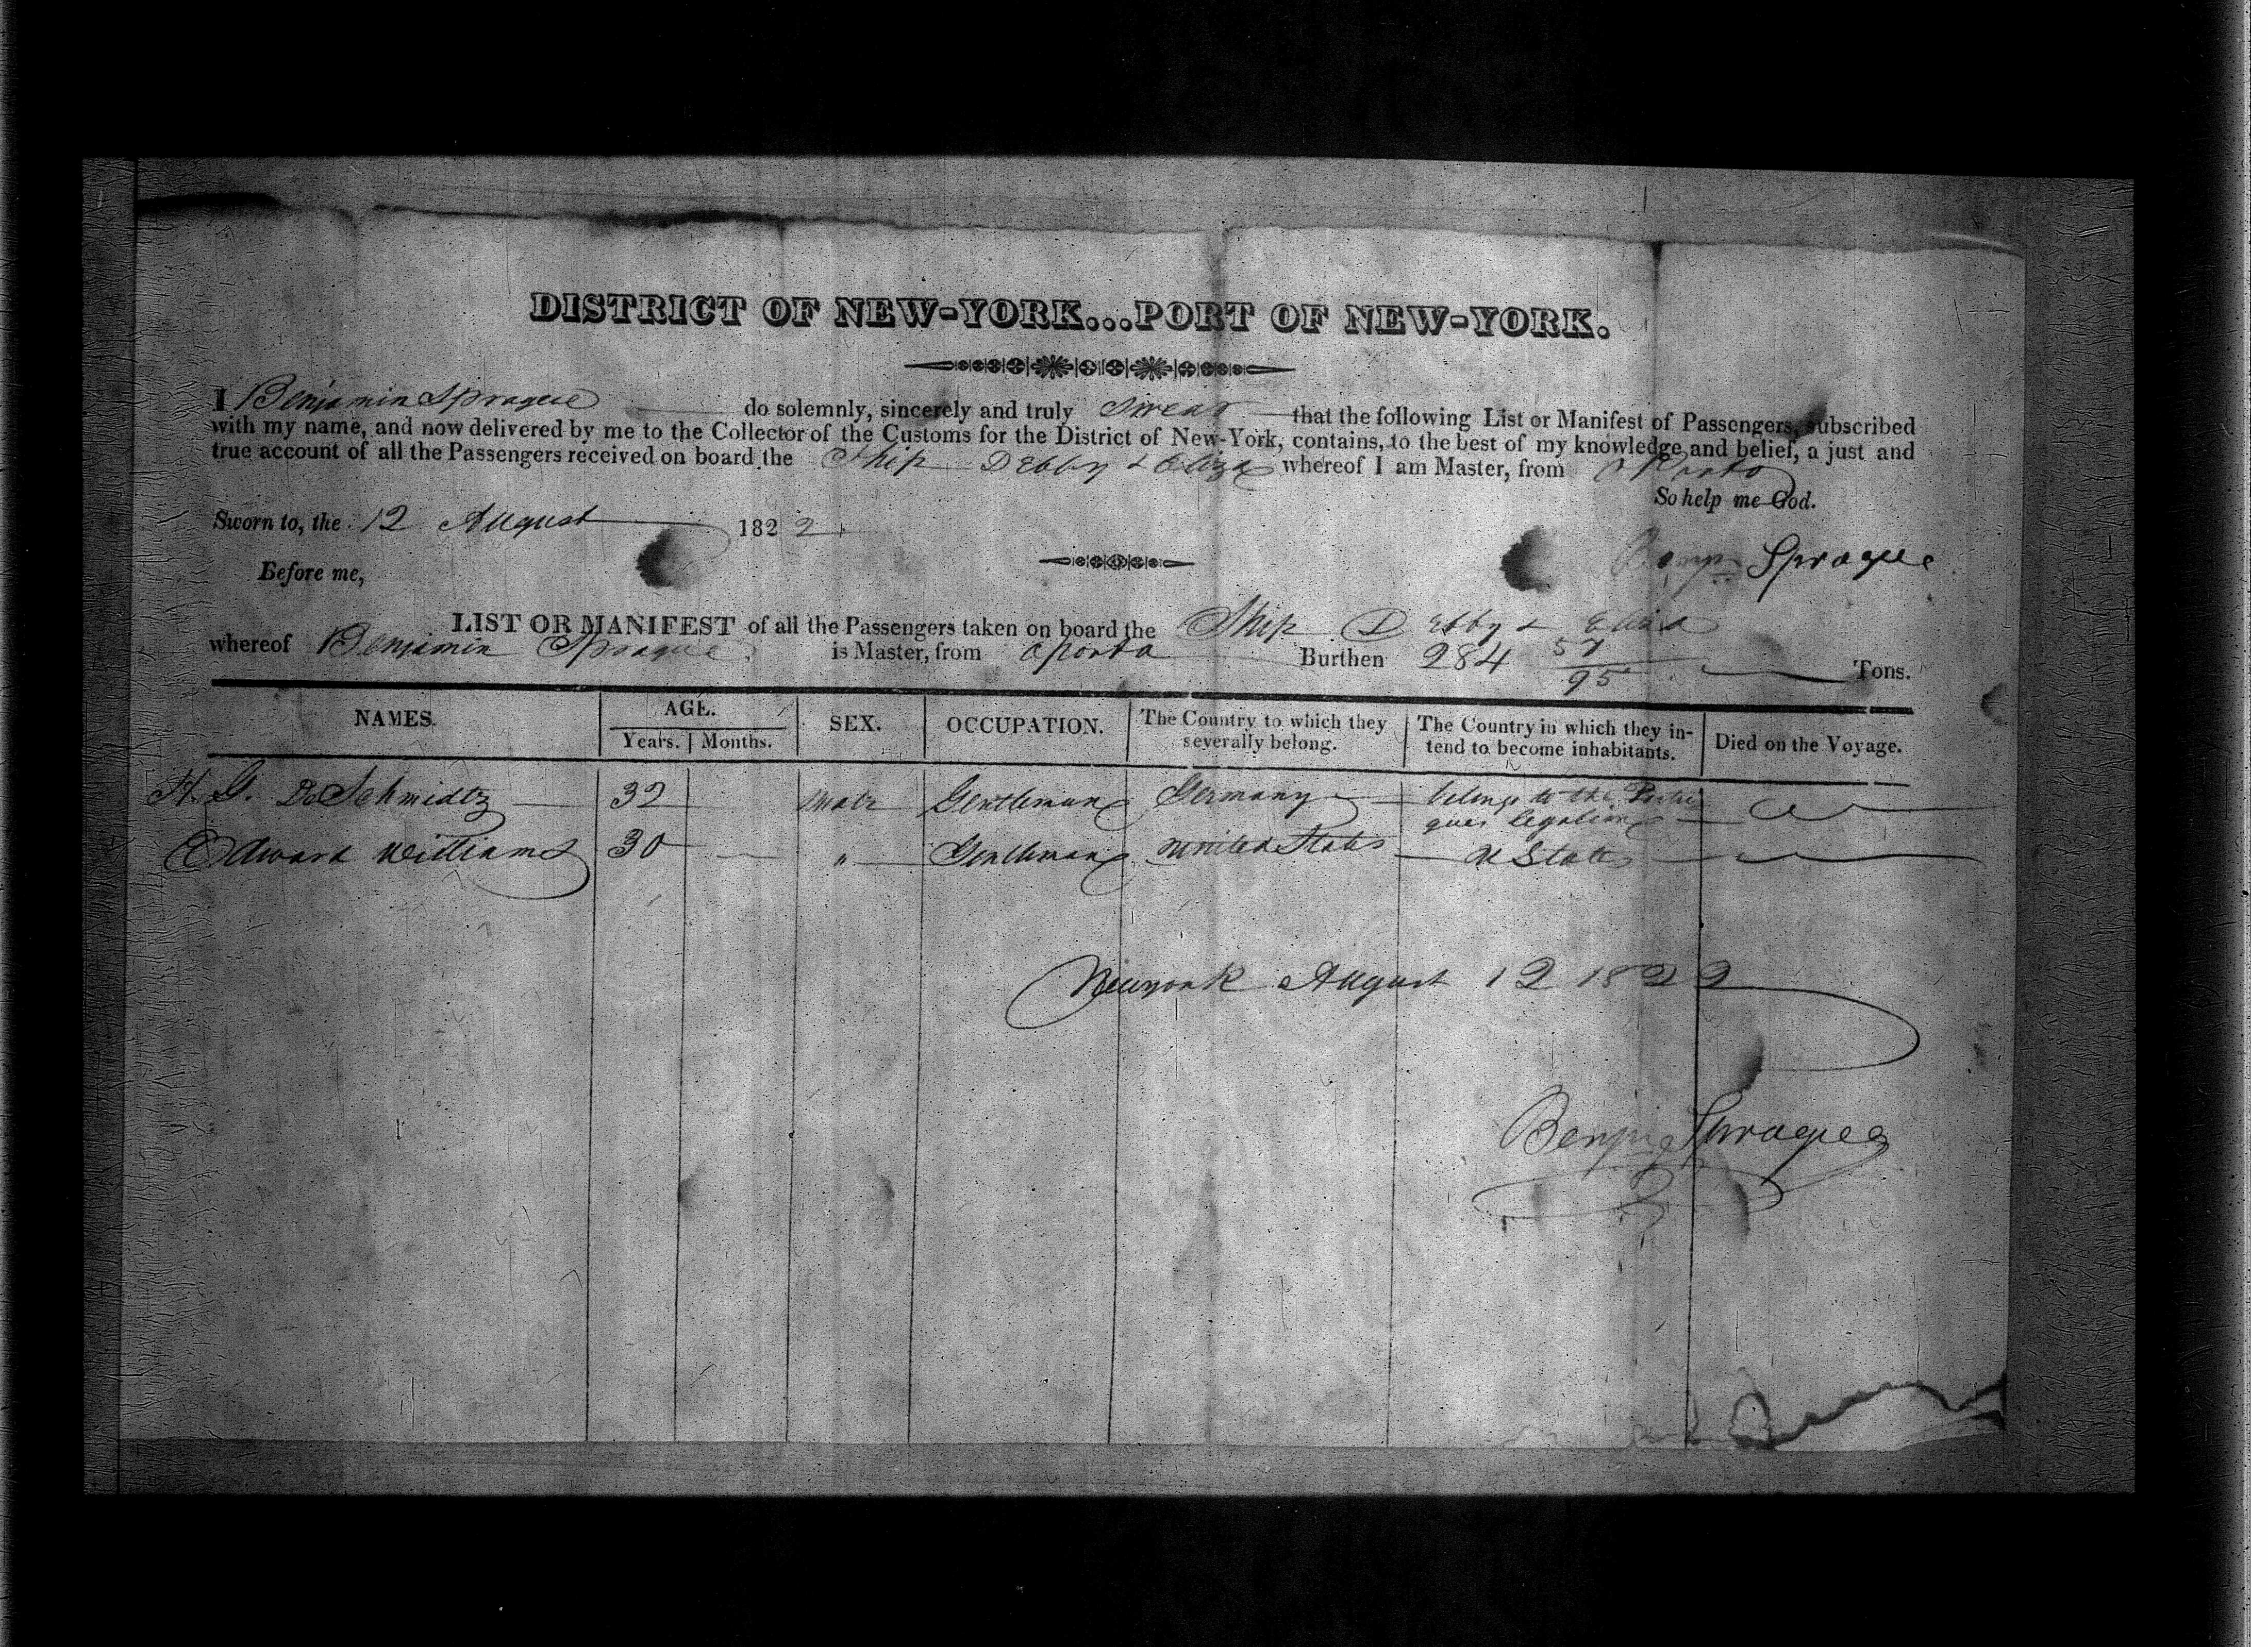 DISTRICT OF NEW-YORK...PORT OF NEW-YORK.
I Benjamin Sprague do solemnly, sincerely and truly Swear that the following List or Manifest of Passengers, subscribed
with my name, and now delivered by me to the Collector of the Customs for the District of New-York, contains, to the best of my knowledge and belief, a just and
true account of all the Passengers received on board the Ship Debby & Eliza whereof I am Master, from Oporto
So help me God.
Sworn to, the 12 August 1822
Before me,
Benj Sprague
LIST OR MANIFEST of all the Passengers taken on board the Ship Debby & Eliza
whereof Benjamin Sprague is Master, from Oporto Burthen 284 57/95 Tons.
NAMES. AGE. SEX. OCCUPATION. The Country to which they severally belong. The Country in which they in-tend to become inhabitants. Died on the Voyage.
Years. Months.
H. G. De Schmidtz 32 Male Gentleman Germany belongs to the Portu
gues legation
Edward Williams 30 " Gentleman United States U States
Newyork August 12 1822
Benj Sprague